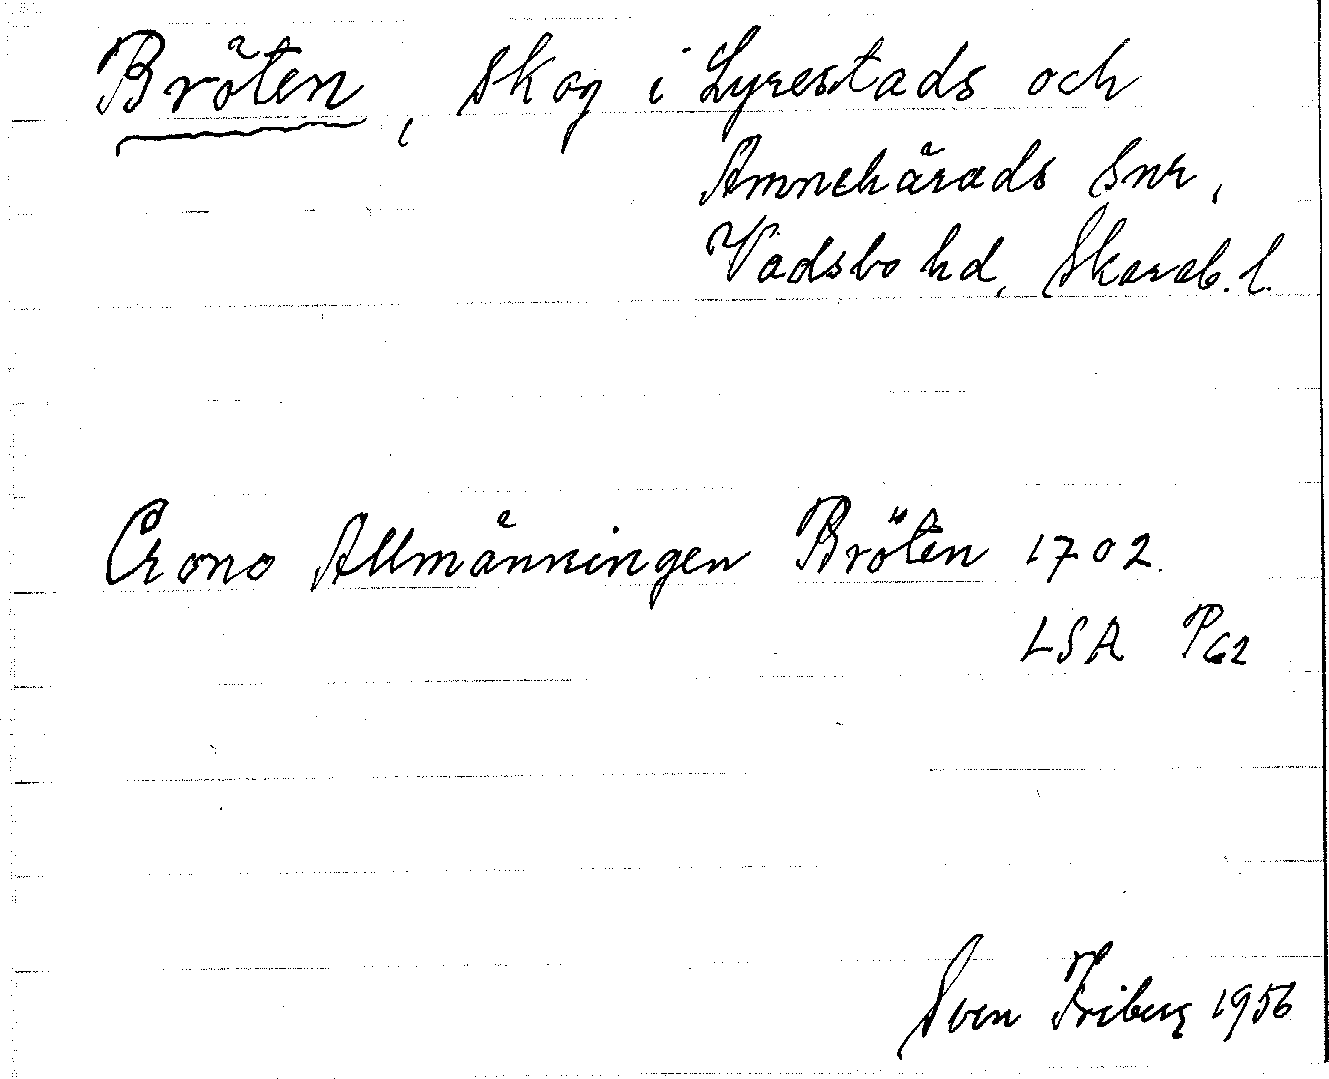 Bröten, skog i Lyrestads och
Amnehärads snr,
Vadsbo hd, Skarab. l.
Crono Allmänningen Bröten 1702.
LSA P62
Sven Friberg 1956